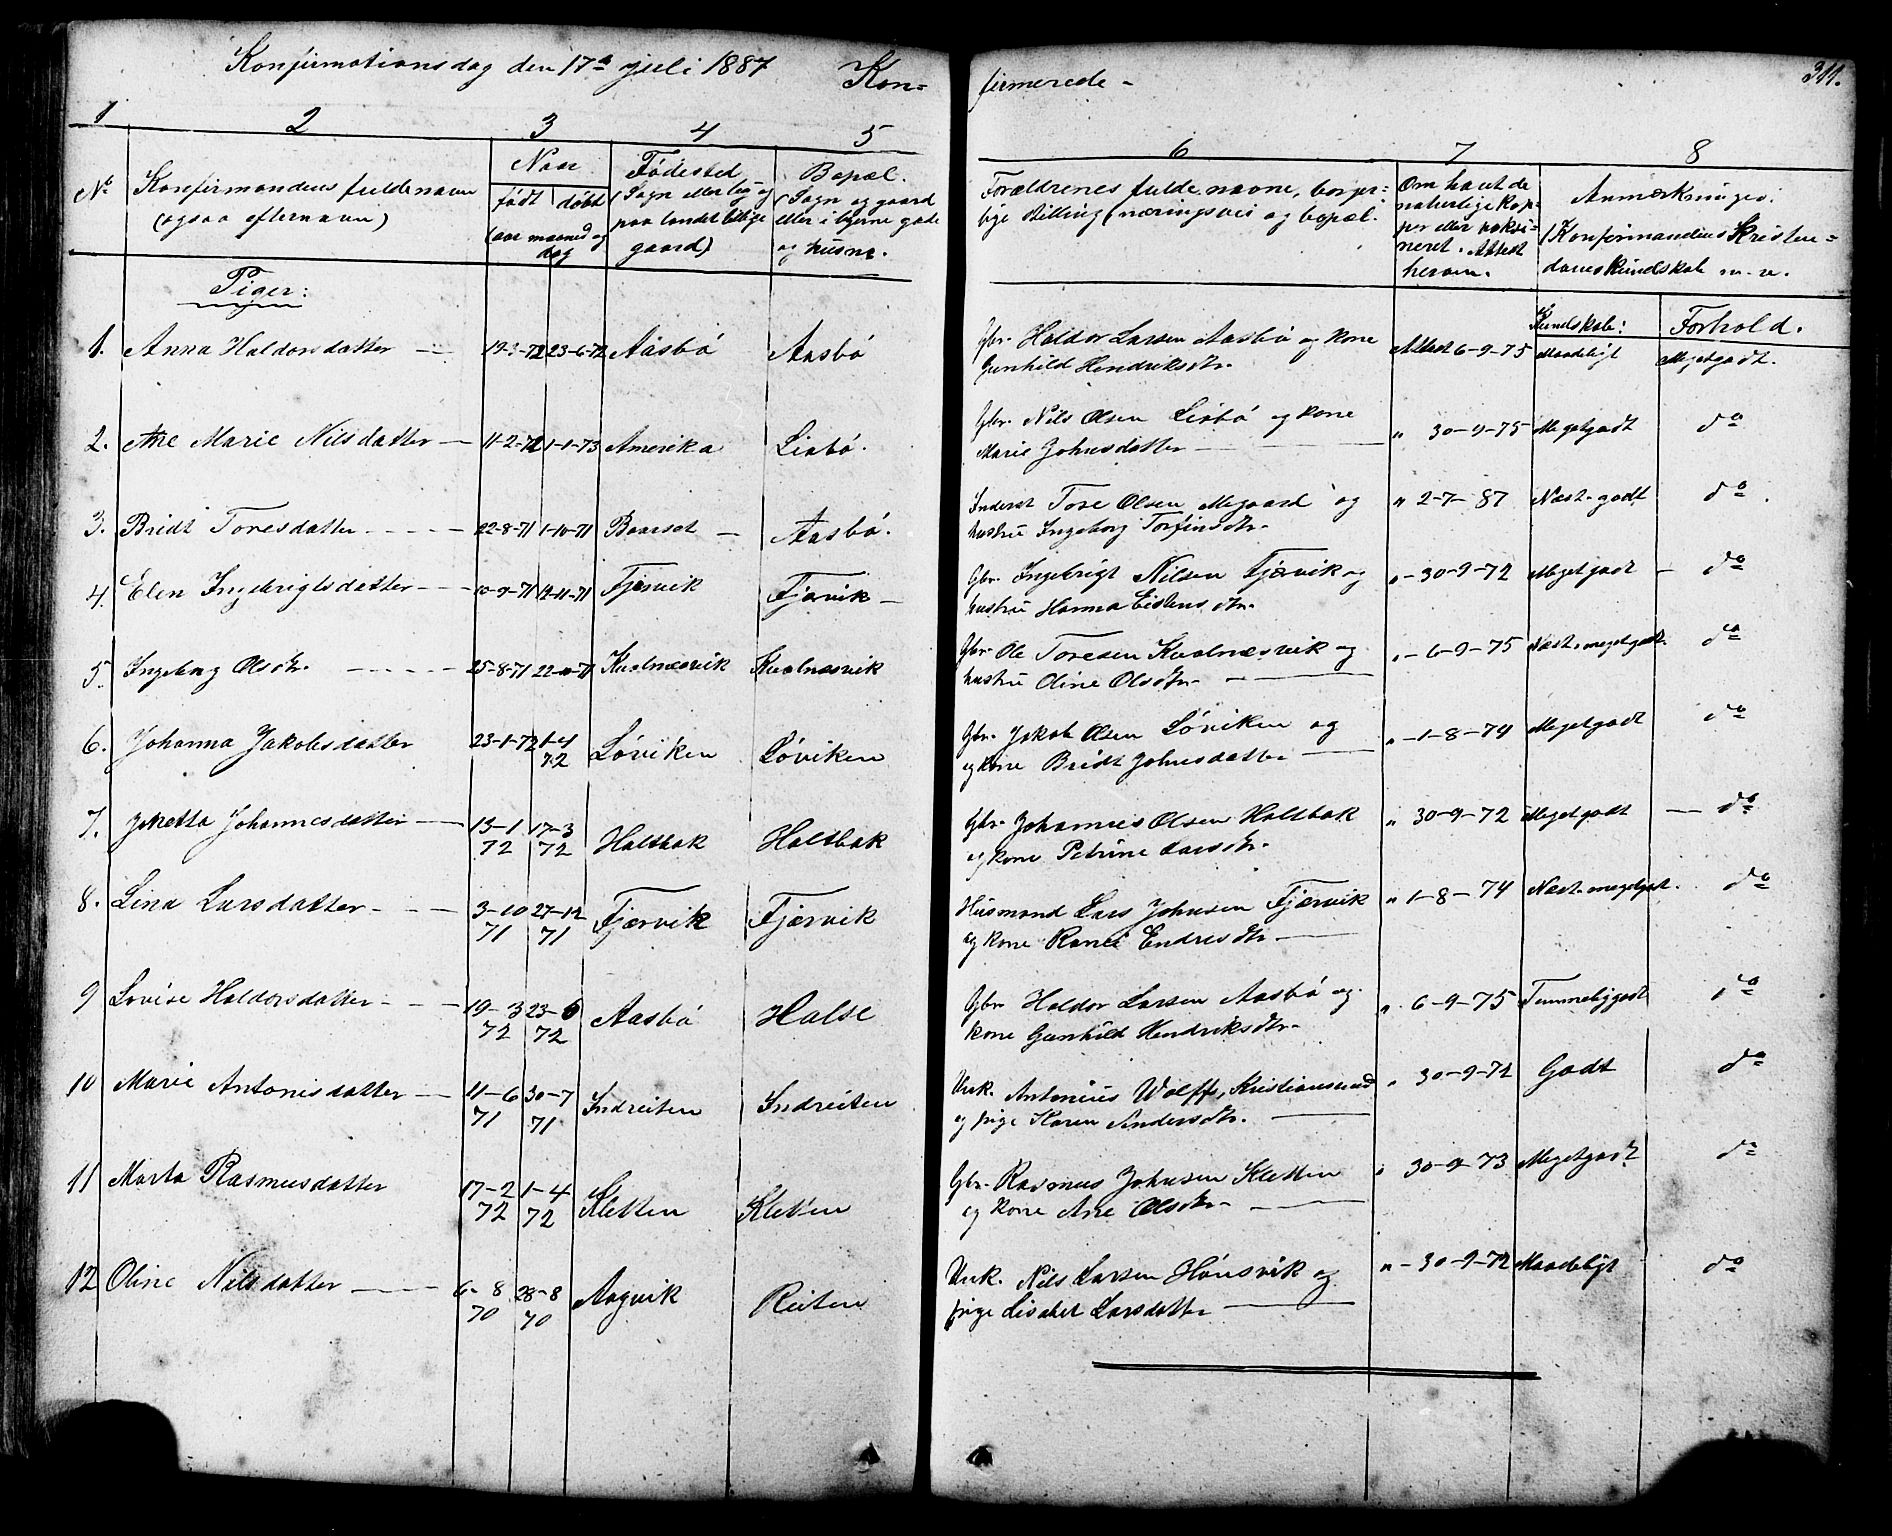 Konfirmationsdag den 17de juli 1887 Kon-
firmerede - 311.
1 2 3 4 5
6 7 8
No Konfirmandens fulde navn (ogsaa efternavn)
Naar
født døbt
(aar maaned og dag
Fødested
(Sogn eller by og
paa landet tillige
gaard)
Bopæl.
(Sogn og gaard
eller i byerne gade
og husnr.
Forældrenes fulde navne, borger-
lige stilling (næringsvei og bopæl.
Om havt de
naturlige kop-
per eller vaksi-
neret. Attest
herom.
Anmærkninger.
(Konfirmandens Kristen-
domskundskab m. v.
Kundskab: Forhold.
Piger:
1. Anna Haldorsdatter 19-3-72 23-6-72 Aasbø Aasbø
Gbr. Haldor Larsen Aasbø og kone Attest 6-9-75 Maadeligt Megetgodt.
Gunhild Hendriksdtr.
2. Ane Marie Nilsdatter 11-2-72 1-1-73 Amerika Lisbø.
Gbr. Nils Olsen Lisbø og kone " 30-9-75 Megetgodt do
Marie Johnsdatter
3. Bridt Toresdatter 22-8-71 1-10-71 Baarset Aasbø.
Inderst Tore Olsen Megaard og " 2-7-87 Næst. godt do.
hustru Ingeborg Torfinsdtr.
4. Elen Ingebrigtsdatter 10-9-71 12-11-71 Fjærvik Fjærvik
Gbr. Ingebrigt Nilsen Fjærvik og " 30-9-72 Megetgodt do
hustru Hanna Eistensdtr.
5. Ingeborg Olsdtr. 25-8-71 22-10-71 Kvalnæsvik Kvalnæsvik
Gbr. Ole Toresen Kvalnæsvik og " 6-9-75 Næst. megetgodt. do
hustru Oline Olsdtr.
6. Johanna Jakobsdatter 23-1-72 1-4 72 Løviken Løviken
Gbr. Jakob Olsen Løviken og " 1-8-74 Megetgodt do
og kone Bridt Johnsdatter
7. Johannesdatter 13-1 72 17-3 72 Haltbak Haltbak
Gbr. Johannes Olsen Haltbak " 30-9-72 Megetgodt do
og kone Petrine Larsdtr.
8. Lina Larsdatter 3-10 71 27-12 71 Fjærvik Fjærvik
Husmand Lars Johnsen Fjærvik " 1-8-74 Næst. megetgodt. do
og kone Ranei Endresdtr.
9 Lovise Haldorsdatter 19-3 72 23-6 72 Aasbø Halse
Gbr Haldor Larsen Aasbø og " 6-9-75 Temmeliggodt do
kone Gunhild Hendriksdtr.
10 Marie Antonisdatter 11-6 71 30-7 71 Indreiten Indreiten
Unk. Antonius Wolff, Kristianssund " 30-9-72 Godt do
og pige Karen Andersdtr.
11 Marta Rasmusdatter 17-2 72 1-4 72 Kletten Kletten
Gbr. Rasmus Johnsen Kletten " 30-9-73 Megetgodt do
og kone Ane Olsdtr
12 Oline Nilsdatter 6-8 70 28-8 70 Aagvik Reiten
Unk. Nils Larsen Hønsvik og " 30-9-72 Maadeligt do
pige Lisabet Larsdatter